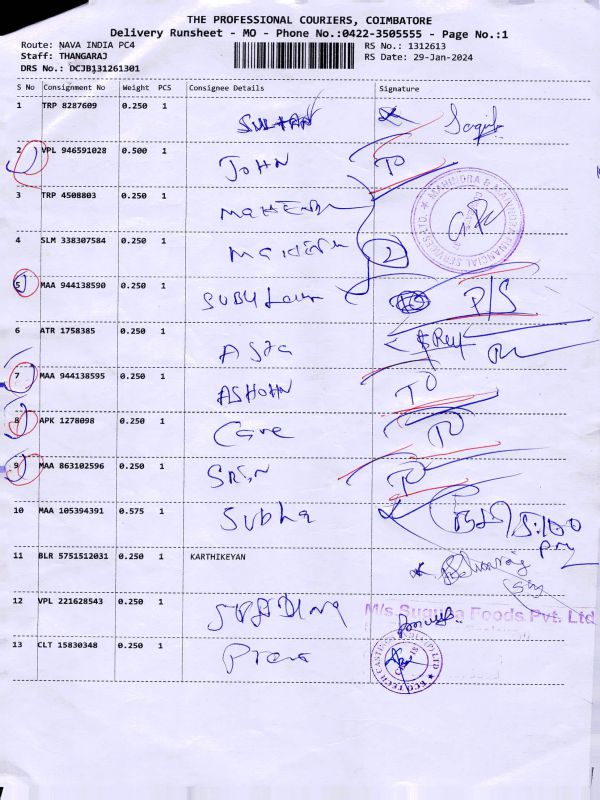 THE PROFESSIONAL COURIERS, COIMBATORE
Delivery Runsheet - MO - Phone No.:0422-3505555 - Page No.:1
Route: NAVA INDIA PC4 RS No.: 1312613
Staff: THANGARAJ RS Date: 29-Jan-2024
DRS No.: DCJB131261301
S No Consignment No Weight PCS Consignee Details Signature
1 TRP 8287609 0.250 1 SULTAN
2 VPL 946591028 0.500 1 JOHN TO
3 TRP 4508803 0.250 1
4 SLM 338307584 0.250 1 2
MAHINDRA & MAHINDRA FINANCIAL SERVICES LTD.
5 MAA 944138590 0.250 1 P/S
6 ATR 1758385 0.250 1
7 MAA 944138595 0.250 1 ASHOHN TO
8 APK 1278098 0.250 1 Care TO
9 MAA 863102596 0.250 1 TO
10 MAA 105394391 0.575 1 Subha
11 BLR 5751512031 0.250 1 KARTHIKEYAN
12 VPL 221628543 0.250 1
M/s Suguna Foods Pvt. Ltd
13 CLT 15830348 0.250 1